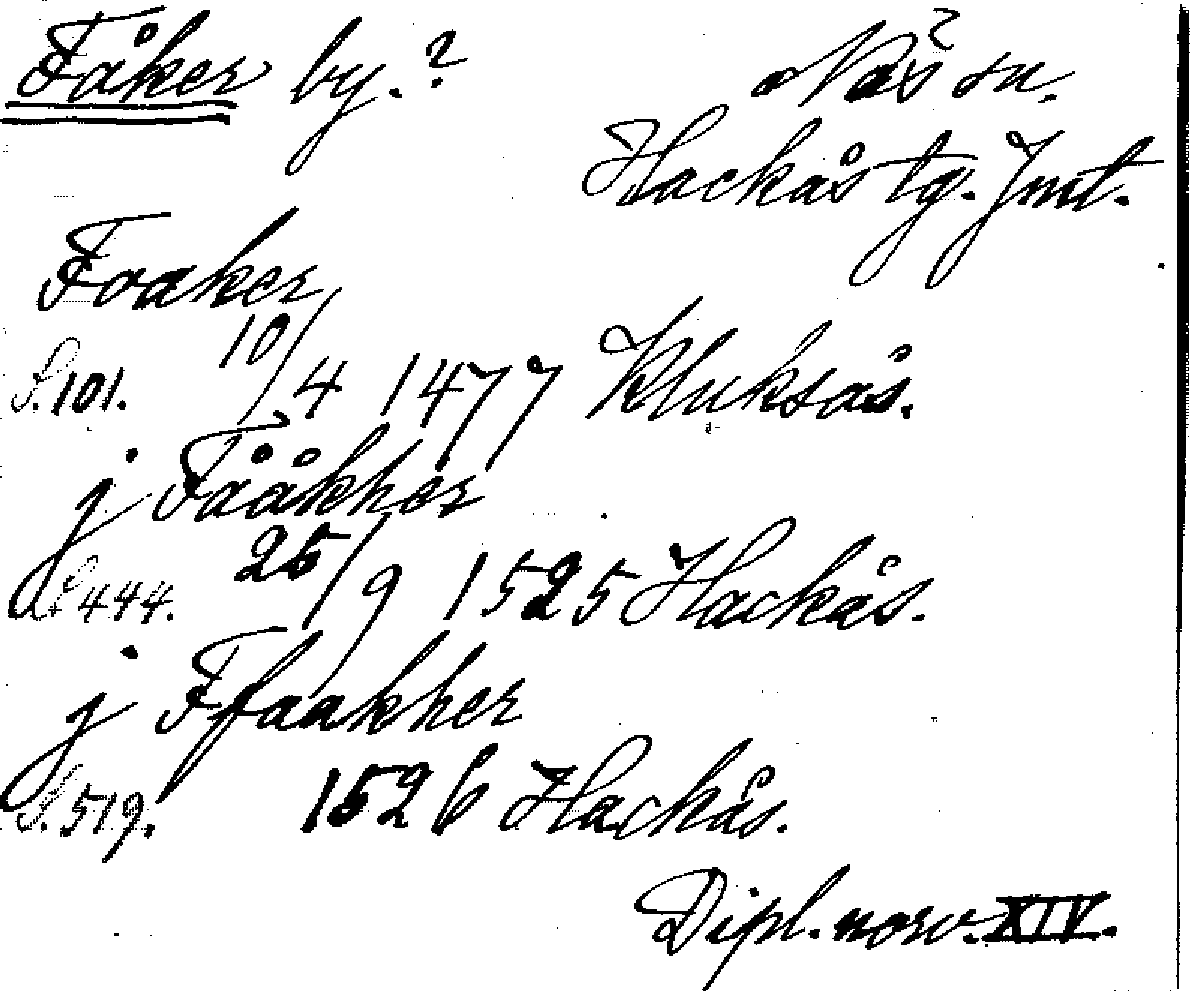 Fåker by.? Näs sn.?
Hackås tg. Jmt.
Faaker
S.101. 10/4 1477 Kluksås.
j Fååkher
S.444. 25/9 1525 Hackås.
j Ffaakher
S.519. 1526 Hackås.
Dipl. norv. XIV.